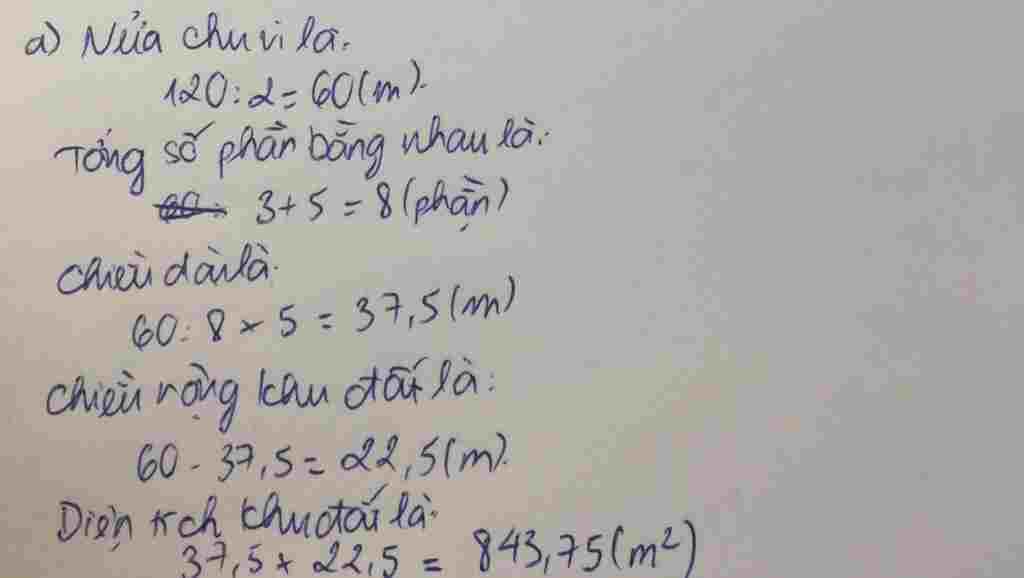 a) Nửa chu vi là.
120 : 2 = 60 (m).
Tổng số phần bằng nhau là:
3 + 5 = 8 (phần)
Chiều dài là:
60 : 8 × 5 = 37,5 (m)
Chiều rộng khu đất là:
60 - 37,5 = 22,5 (m).
Diện tích khu đất là:
37,5 × 22,5 = 843,75 (m²)